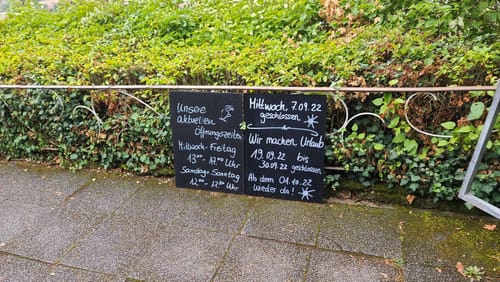 Unsere
aktuellen
Öffnungszeiten
Mittwoch - Freitag
13⁰⁰ - 17³⁰ Uhr
Samstag + Sonntag
12⁰⁰ - 17³⁰ Uhr
Mittwoch, 7.09.22
geschlossen
Wir machen Urlaub
19.09.22 bis
30.09.22 geschlossen
Ab dem 01.10.22
wieder da!